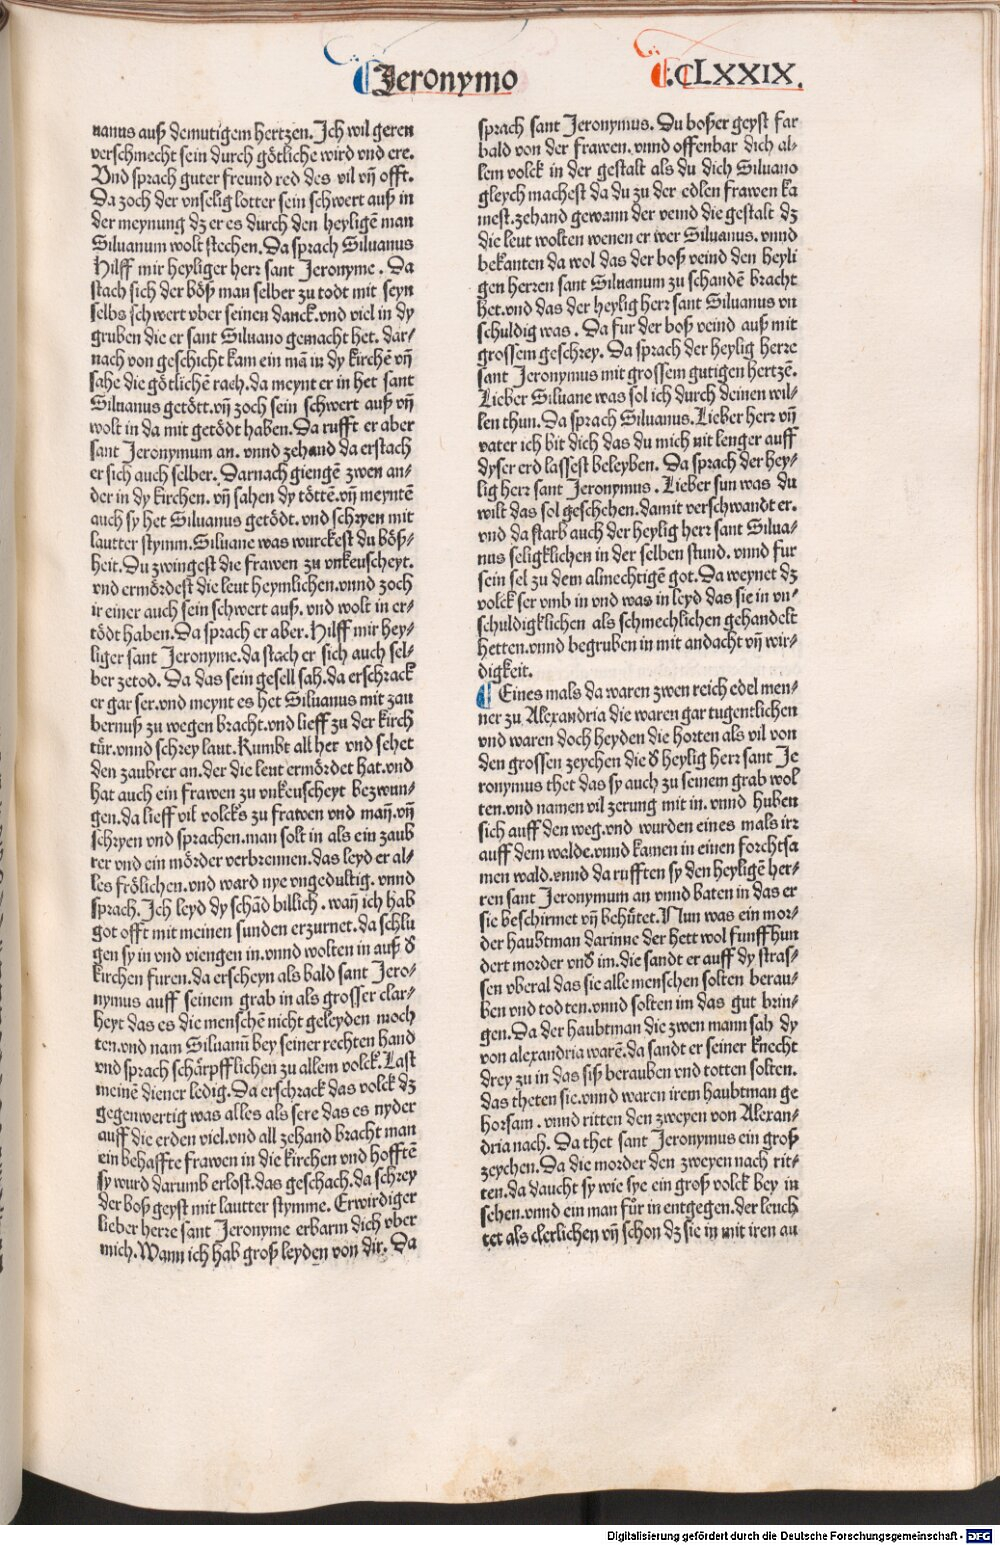 Jeronymo
.CLXXIX.
uanus auß demutigem hertzen. Ich wil geren
verschmecht sein durch götliche wird vnd ere.
Vnd sprach guter freund red des vil vn̄ offt.
Da zoch der vnselig lotter sein schwert auß in
der meynung dz er es durch den heyligē man
Siluanum wolt stechen. Da sprach Siluanus
Hilff mir heyliger herr sant Jeronyme. Da
stach sich der böß man selber zu todt mit seyn
selbs schwert vber seinen danck. vnd viel in dy
gruben die er sant Siluano gemacht het. dar-
nach von geschicht kam ein mā in dy kirchē vn̄
sahe die götlichē rach. da meynt er in het sant
Siluanus getött. vn̄ zoch sein schwert auß vn̄
wolt in da mit getödt haben. Da rufft er aber
sant Jeronymum an. vnnd zehand da erstach
er sich auch selber. Darnach giengē zwen an-
der in dy kirchen. vn̄ sahen dy töttē. vn̄ meyntē
auch sy het Siluanus getödt. vnd schryen mit
lautter stymm. Siluane was wurckest du böß-
heit. Du zwingest die frawen zu vnkeuscheyt.
vnd ermördest die leut heymlichen. vnnd zoch
ir einer auch sein schwert auß. vnd wolt in er-
tödt haben. Da sprach er aber. Hilff mir hey-
liger sant Jeronyme. da stach er sich auch sel-
ber zetod. Da das sein gesell sah. da erschrack
er gar ser. vnd meynt es het Siluanus mit zau
bernuß zu wegen bracht. vnd lieff zu der kirch
tür. vnnd schrey laut. Kumbt all her vnd sehet
den zaubrer an. der die leut ermördet hat. vnd
hat auch ein frawen zu vnkeuscheyt bezwun-
gen. da lieff vil volcks zu frawen vnd man̄. vn̄
schryen vnd sprachen. man solt in als ein zaub
rer vnd ein mörder verbrennen. das leyd er al-
les frölichen. vnd ward nye vngedultig. vnnd
sprach. Ich leyd dy schād billich. wan̄ ich hab
got offt mit meinen sunden erzurnet. da schlu
gen sy in vnd viengen in. vnnd wolten in auß d̕
kirchen furen. da erscheyn als bald sant Jero-
nymus auff seinem grab in als grosser clar-
heyt das es die menschē nicht geleyden moch
ten. vnd nam Siluanū bey seiner rechten hand
vnd sprach schärpfflichen zu allem volck. Last
meinē diener ledig. Da erschrack das volck dz
gegenwertig was alles als sere das es nyder
auff die erden viel. vnd all zehand bracht man
ein behaffte frawen in die kirchen vnd hofftē
sy wurd darumb erlost. das geschach. da schrey
der boß geyst mit lautter stymme. Erwirdiger
lieber herre sant Jeronyme erbarm dich vber
mich. Wann ich hab groß leyden von dir. Da
sprach sant Jeronymus. Du boßer geyst far
bald von der frawen. vnnd offenbar dich al-
lem volck in der gestalt als du dich Siluano
gleych machest da du zu der edlen frawen ka
mest. zehand gewann der veind die gestalt dz
die leut wolten wenen er wer Siluanus. vnnd
bekanten da wol das der boß veind den heyli
gen herren sant Siluanum zu schandē bracht
het. vnd das der heylig herr sant Siluanus vn
schuldig was. Da fur der boß veind auß mit
grossem geschrey. Da sprach der heylig herre
sant Jeronymus mit grossem gutigen hertzē.
Lieber Siluane was sol ich durch deinen wil-
len thun. Da sprach Siluanus. Lieber herr vn̄
vater ich bit dich das du mich nit lenger auff
dyser erd lassest beleyben. Da sprach der hey-
lig herr sant Jeronymus. Lieber sun was du
wilt das sol geschehen. damit verschwandt er.
vnd da starb auch der heylig herr sant Silua-
nus seligklichen in der selben stund. vnnd fur
sein sel zu dem almechtigē got. Da weynet dz
volck ser vmb in vnd was in leyd das sie in vn-
schuldigklichen als schmechlichen gehandelt
hetten. vnnd begruben in mit andacht vn̄ wir-
digkeit.
Eines mals da waren zwen reich edel men-
ner zu Alexandria die waren gar tugentlichen
vnd waren doch heyden die horten als vil von
den grossen zeychen die d̕ heylig herr sant Je
ronymus thet das sy auch zu seinem grab wol
ten. vnd namen vil zerung mit in. vnnd huben
sich auff den weg. vnd wurden eines mals irr
auff dem walde. vnnd kamen in einen forchtsa
men wald. vnnd da rufften sy den heyligē her-
ren sant Jeronymum an vnnd baten in das er
sie beschirmet vn̄ behütet. Nun was ein mor-
der haubtman darinne der hett wol funffhun
dert morder vnd̕ im. die sandt er auff dy stras-
sen vberal das sie alle menschen solten berau-
ben vnd todten. vnnd solten im das gut brin-
gen. Da der haubtman die zwen mann sah dy
von alexandria warē. da sandt er seiner knecht
drey zu in das siß berauben vnd totten solten.
das theten sie. vnnd waren irem haubtman ge
horsam. vnnd ritten den zweyen von Alexan-
dria nach. Da thet sant Jeronymus ein groß
zeychen. Da die morder den zweyen nach rit-
ten. da daucht sy wie sye ein groß volck bey in
sehen. vnnd ein man fůr in entgegen. der leuch
tet als clerlichen vn̄ schon dz sie in mit iren au
Digitalisierung gefördert durch die Deutsche Forschungsgemeinschaft - DFG